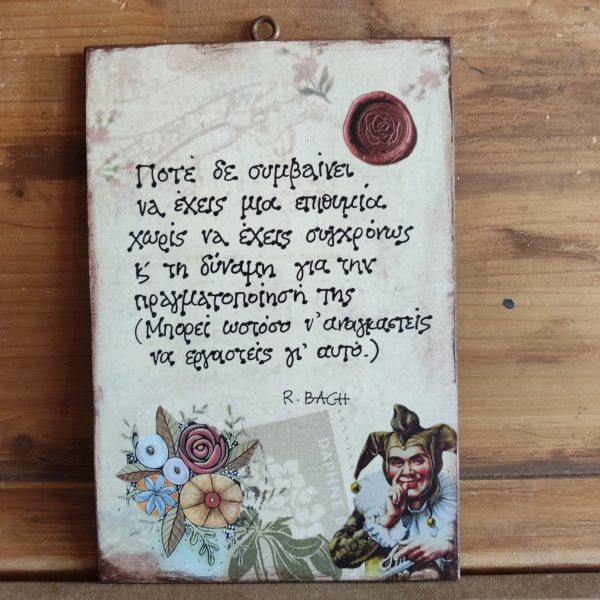 Ποτέ δε συμβαίνει
να έχεις μια επιθυμία
χωρίς να έχεις συγχρόνως
κ' τη δύναμη για την
πραγματοποίησή της
(Μπορεί ωστόσο ν' αναγκαστείς
να εργαστείς γι' αυτό.)
R. BACH
DAPHNE